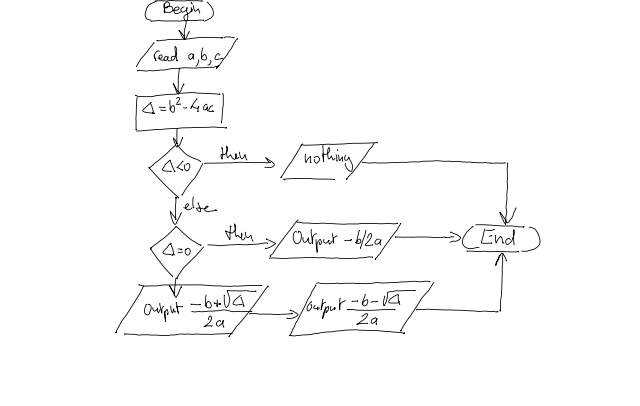 Begin
read a,b,c
Δ = b² - 4ac
Δ<0
then
nothing
else
Δ=0
then
Output -b/2a
End
Output (-b+√Δ)/2a
output (-b-√Δ)/2a